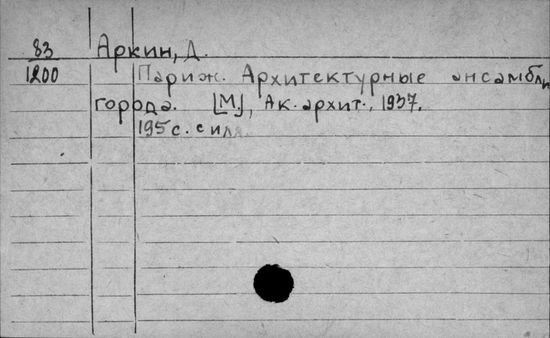 83 Аркин, Д.
1200 Париж. Архитектурные ансамбли
города. [М.], Ак. архит., 1937.
195 с. с илл.